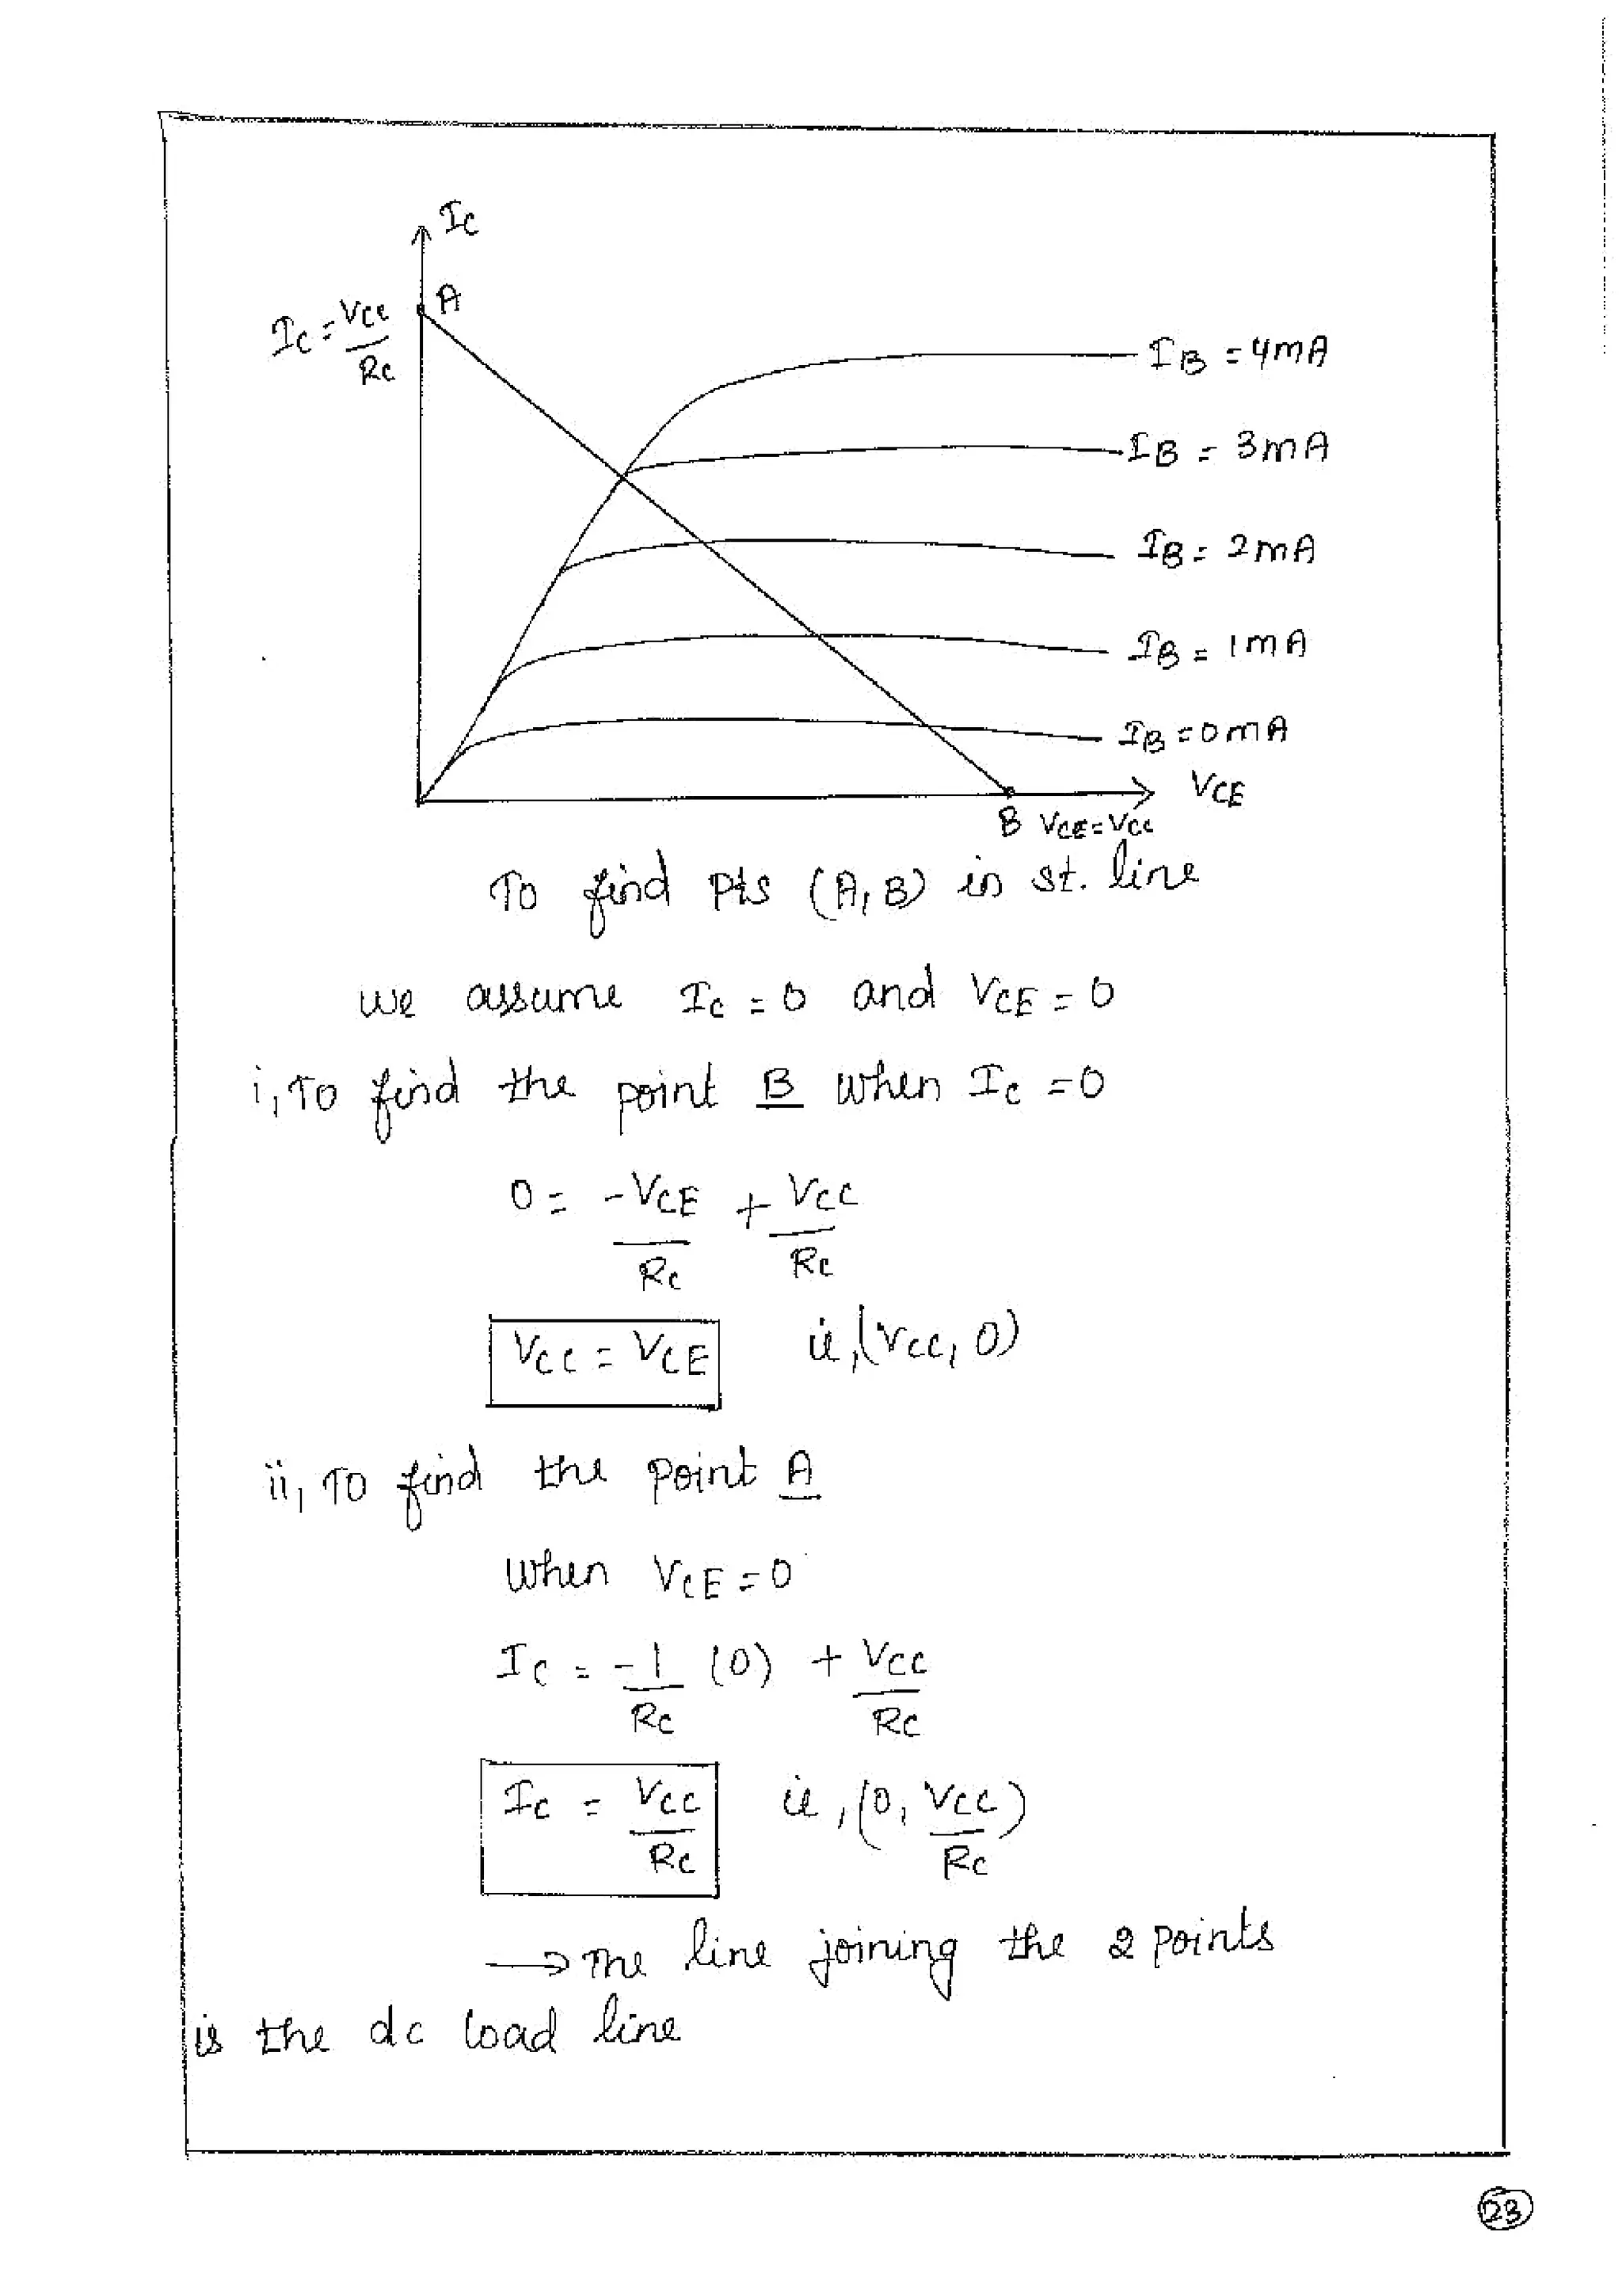 Ic
A
Ic = Vcc/Rc
IB = 4mA
IB = 3mA
IB = 2mA
IB = 1mA
IB = 0mA
VCE
B VCE = Vcc
To find pts (A, B) in st. line
we assume Ic = 0 and VCE = 0
i, To find the point B when Ic = 0
0 = -VCE/Rc + Vcc/Rc
Vcc = VCE ie, (Vcc, 0)
ii, To find the point A
when VCE = 0
Ic = -1/Rc (0) + Vcc/Rc
Ic = Vcc/Rc ie, (0, Vcc/Rc)
→ The line joining the 2 points
is the dc load line
23